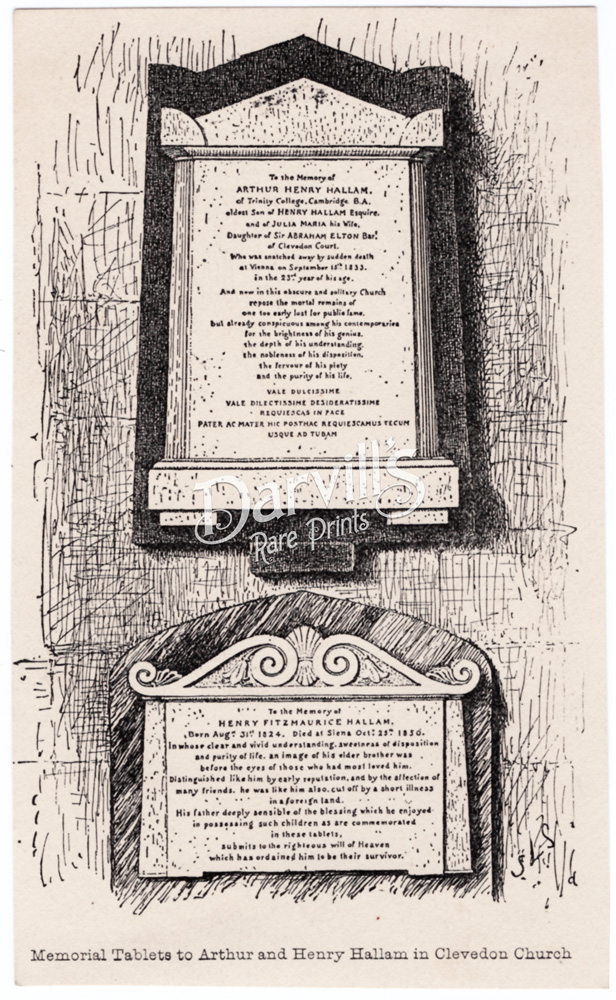 To the Memory of
ARTHUR HENRY HALLAM,
of Trinity College, Cambridge. B.A.
eldest Son of HENRY HALLAM Esquire,
and of JULIA MARIA his Wife,
Daughter of Sir ABRAHAM ELTON Bart
of Clevedon Court.
Who was snatched away by sudden death
at Vienna on September 15th 1833.
in the 23rd year of his age.
And now in this obscure and solitary Church
repose the mortal remains of
one too early lost for public fame,
but already conspicuous among his contemporaries
for the brightness of his genius,
the depth of his understanding,
the nobleness of his disposition,
the fervour of his piety
and the purity of his life.
VALE DULCISSIME
VALE DILECTISSIME DESIDERATISSIME
REQUIESCAS IN PACE
PATER AC MATER HIC POSTHAC REQUIESCAMUS TECUM
USQUE AD TUBAM
Darvill's
Rare Prints
To the Memory of
HENRY FITZMAURICE HALLAM,
Born Augt 31st 1824. Died at Siena Oct: 25th 1850.
In whose clear and vivid understanding, sweetness of disposition
and purity of life, an image of his elder brother was
before the eyes of those who had most loved him.
Distinguished like him by early reputation, and by the affection of
many friends, he was like him also, cut off by a short illness
in a foreign land.
His father deeply sensible of the blessing which he enjoyed
in possessing such children as are commemorated
in these tablets,
submits to the righteous will of Heaven
which has ordained him to be their survivor.
Memorial Tablets to Arthur and Henry Hallam in Clevedon Church